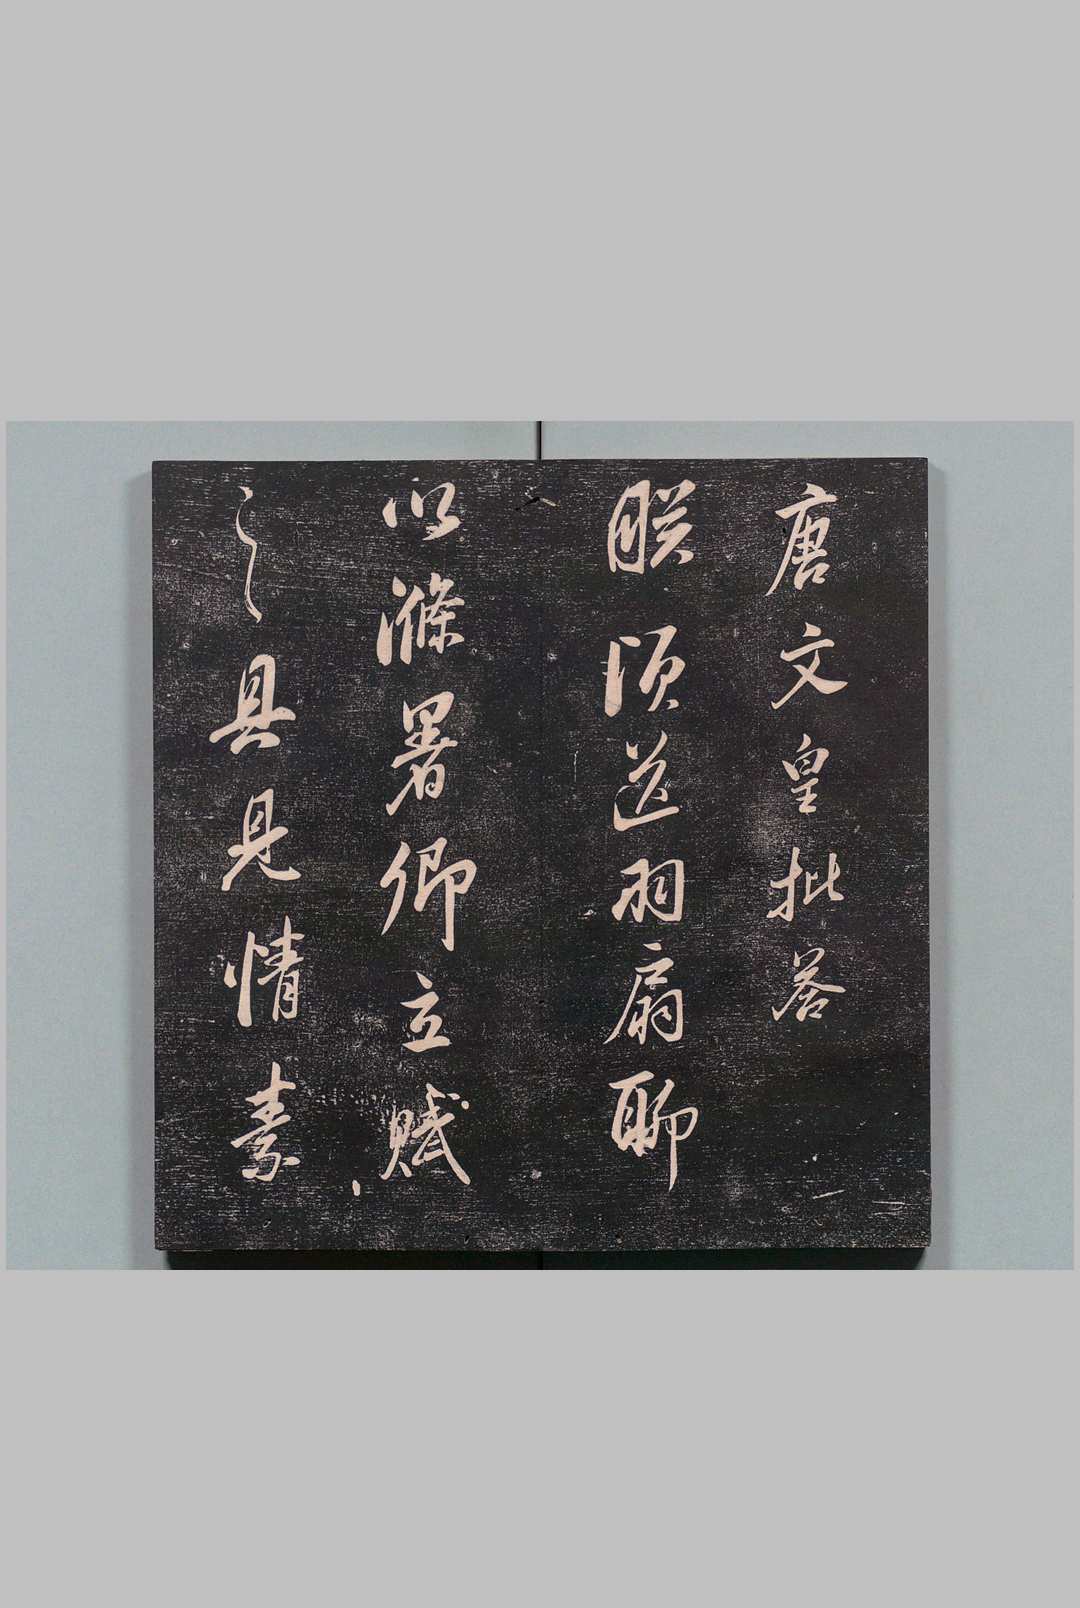 唐文皇批荅
朕頃送羽扇聊
以滌暑卿立賦
之具見情素